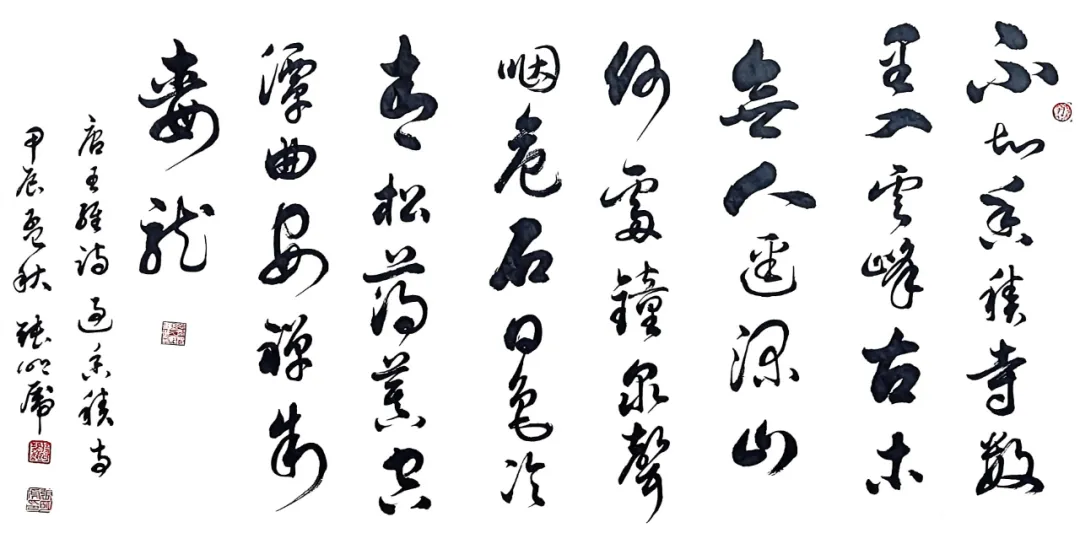 不知香積寺數
里入雲峰古木
無人逕深山
何處鐘泉聲
咽危石日色冷
青松薄暮空
潭曲安禪制
毒龍
唐王維詩過香積寺
甲辰孟秋 張